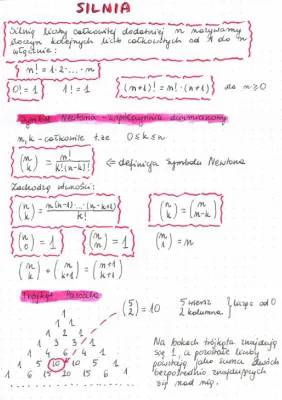 SILNIA
Silnią liczby całkowitej dodatniej n nazywamy
iloczyn kolejnych liczb całkowitych od 1 do n
włącznie:
n! = 1·2·...·n
0! = 1 1! = 1 (n+1)! = n!·(n+1) dla n≥0
Symbol Newtona - współczynnik dwumianowy
n, k - całkowite t.że 0≤k≤n
(n k) = n!/k!(n-k)! ⇐ definicja symbolu Newtona
Zachodzą równości:
(n k) = n(n-1)·...·(n-k+1)/k! (n k) = (n n-k)
(n 0) = 1 (n n) = 1 (n 1) = n
(n k) + (n k+1) = (n+1 k+1)
Trójkąt Pascala
1
1 1
1 2 1
1 3 3 1
1 4 6 4 1
1 5 10 10 5 1
1 6 15 20 15 6 1
(5 2) = 10 5 wiersz
2 kolumna
licząc od 0
Na bokach trójkąta znajdują
się 1, a pozostałe liczby
powstają jako suma dwóch
bezpośrednio znajdujących
się nad nią.